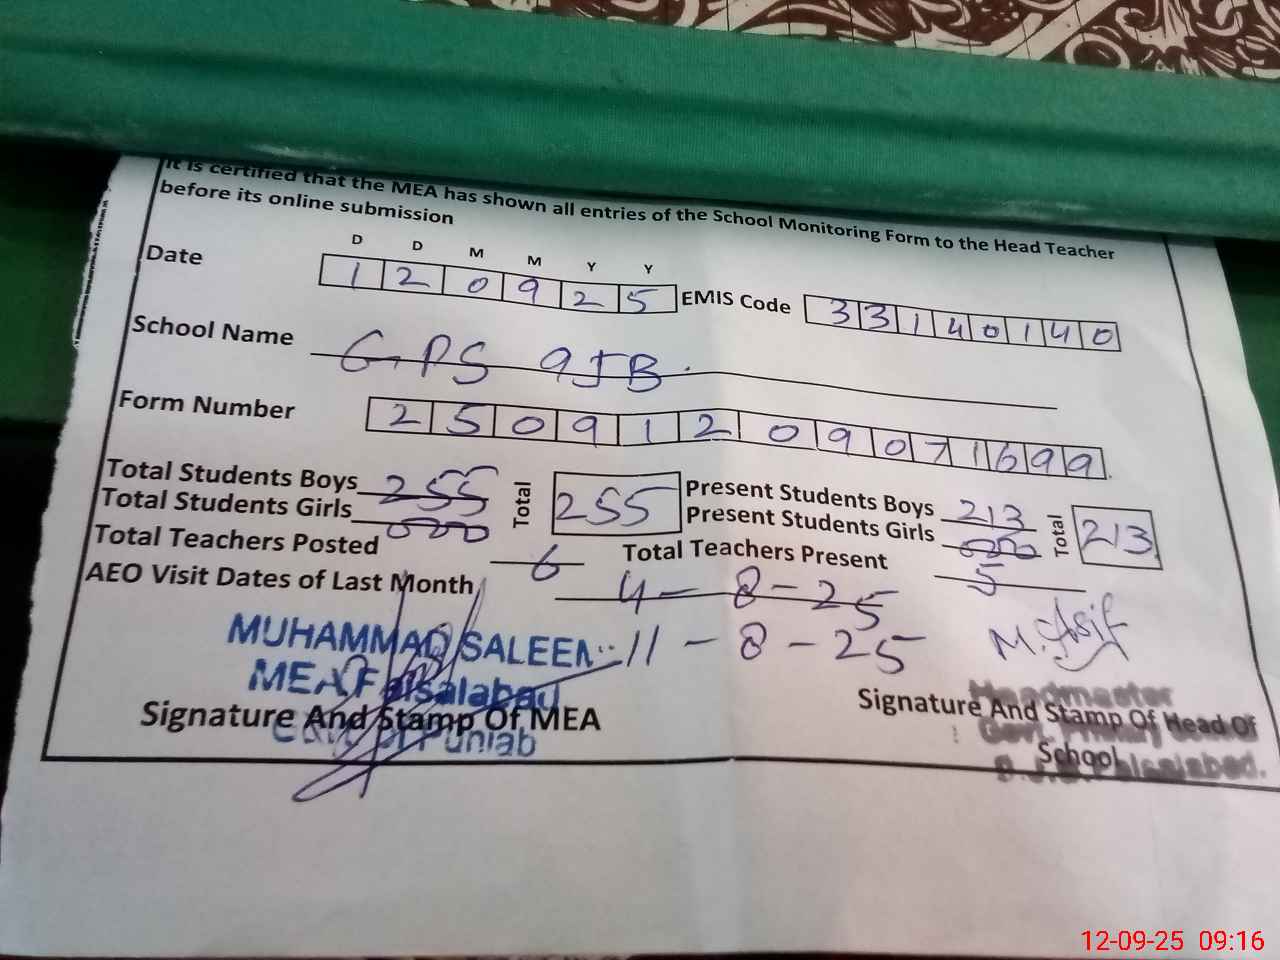 It is certified that the MEA has shown all entries of the School Monitoring Form to the Head Teacher
before its online submission
D D M M Y Y
Date 1 2 0 9 2 5 EMIS Code 3 3 1 4 0 1 4 0
School Name GPS 9JB.
Form Number 2 5 0 9 1 2 0 9 0 7 1 6 9 9
Total Students Boys 255 Total 255 Present Students Boys 213 Total 213
Total Students Girls 000 Present Students Girls 000
Total Teachers Posted 6 Total Teachers Present 5
AEO Visit Dates of Last Month 4-8-25
11-8-25 M. Asif
MUHAMMAD SALEEM
MEA Faisalabad
Signature And Stamp Of MEA
Punjab
Headmaster
Signature And Stamp Of Head Of
School
Govt. Primary
Faisalabad.
12-09-25 09:16